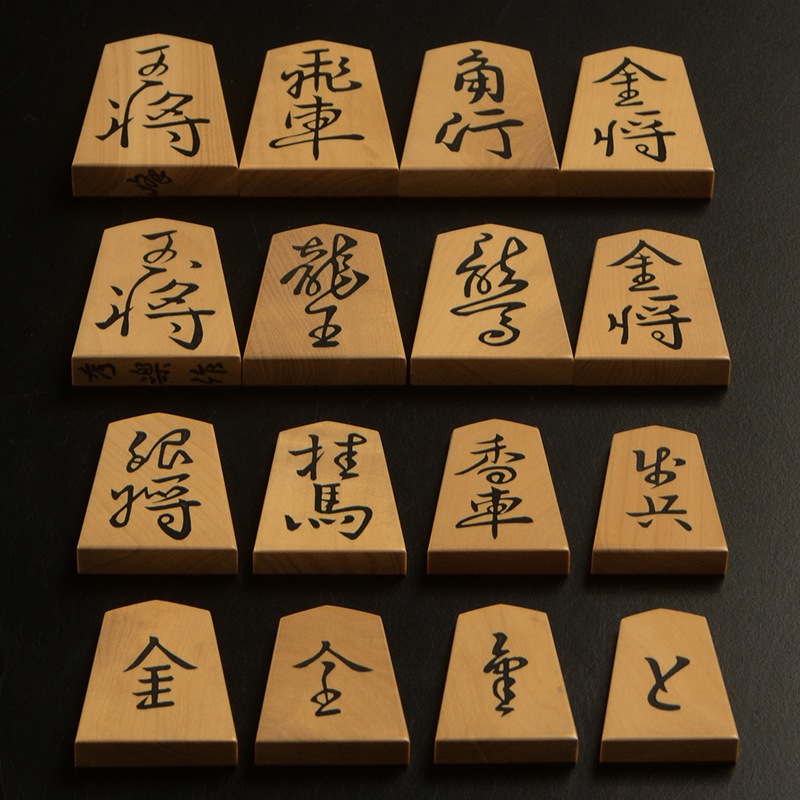 王将
飛車
角行
金将
玉将
龍王
龍馬
金将
銀将
桂馬
香車
歩兵
金
全
金
と